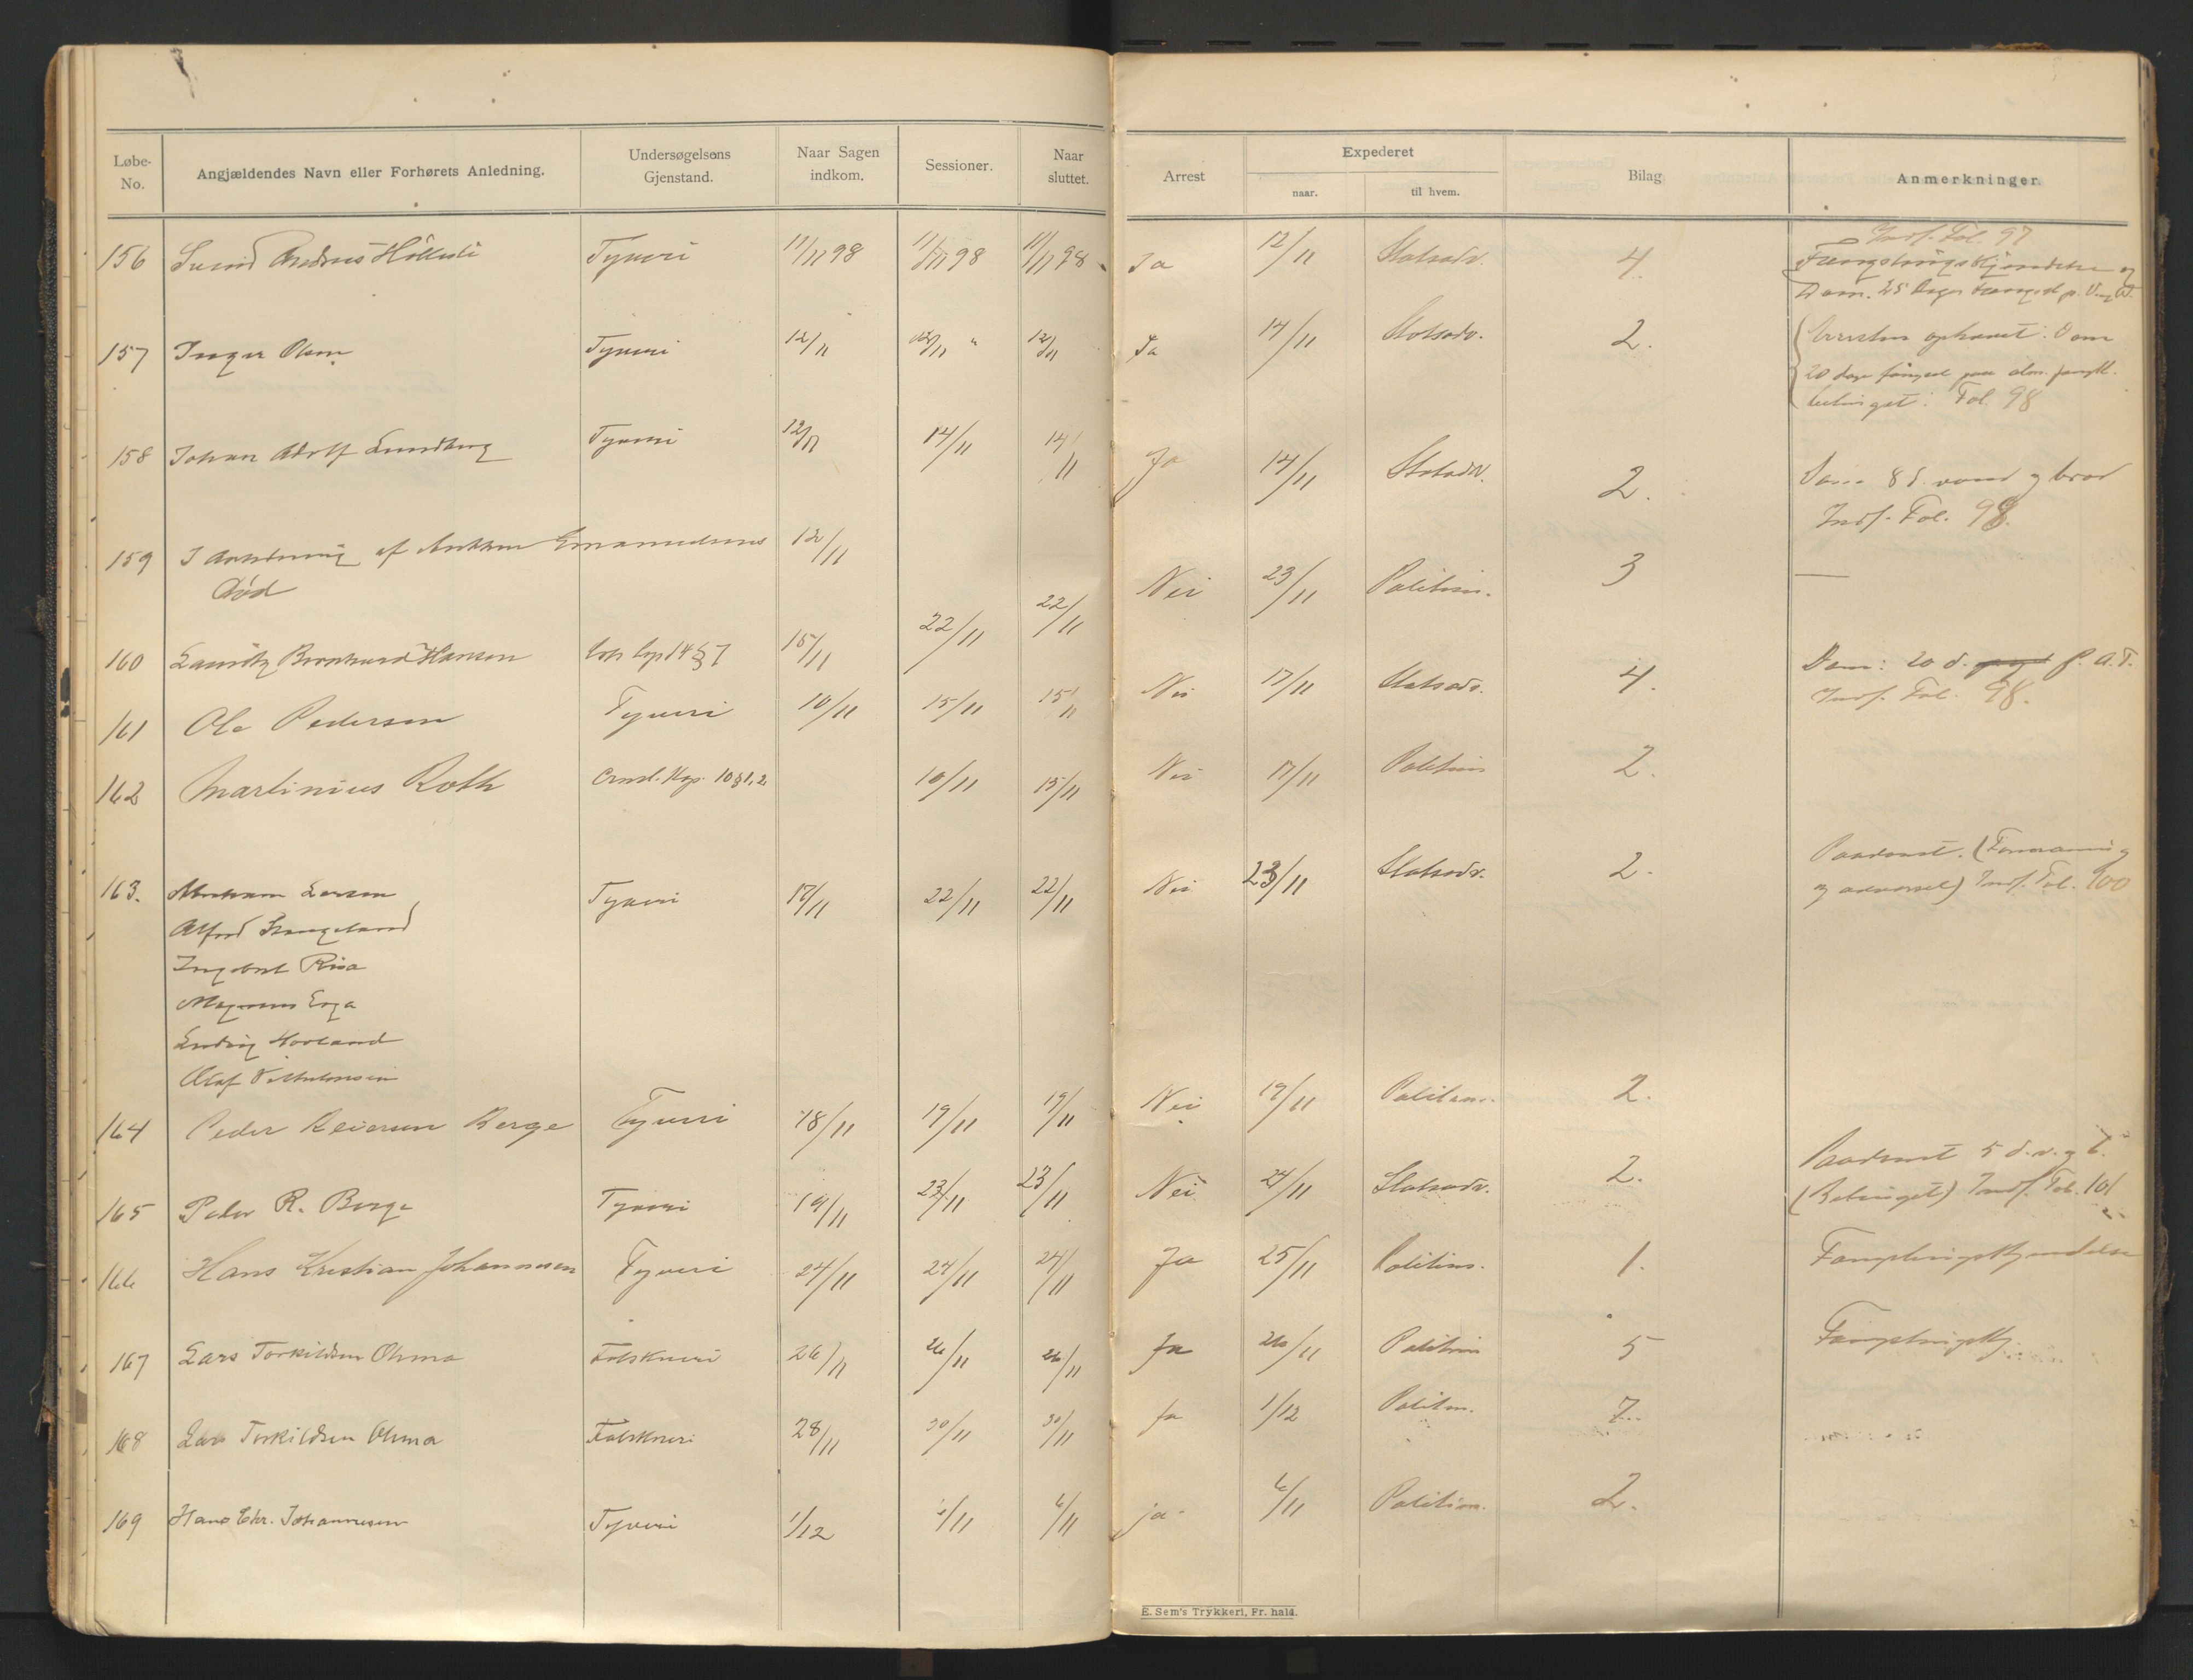 Løbe-No. Angjældendes Navn eller Forhørets Anledning. Undersøgelsens Gjenstand. Naar Sagen indkom. Sessioner. Naar sluttet. Arrest Expederet naar. til hvem. Bilag Anmerkninger
156 Andreas Tyveri 11/11 98 11/11 98 11/11 98 Ja 12/11 Statsadv. 4. Indf. Fol. 97
Fængslingskjendelse og
Dom. 25 Dages
157 Inger Olsen Tyveri 12/11 12/11 " 12/11 Ja 14/11 Statsadv. 2. Arresten ophævet. Dom
20 dage fængsel paa alm. fangek.
betinget. Fol 98
158 Johan Adolf Lundberg Tyveri 12/11 14/11 14/11 Ja 14/11 Statsadv. 2. Dom 8 d. vand og brød
Indf. Fol. 98.
159 I Anledning af Emanuelsens 12/11 22/11 22/11 Nei 23/11 Politim. 3 —
Død
160 Lauritz Bernhard Hansen Kap 14 § 7 15/11 Nei 17/11 Statsadv. 4. Dom: 20 d. f. A.T.
Indf. Fol. 98.
161 Ole Pedersen Tyveri 10/11 15/11 15/11 Nei 17/11 Politim 2.
162 Martinius Roth Kap. 10 § 1, 2 10/11 15/11
163. Abraham Larsen Tyveri 17/11 22/11 22/11 Nei 23/11 Statsadv. 2. Paadømt. (Formaning
og advarsel) Indf. Fol. 100
Alfred Stangeland
Ingebret Risa
Magnus Erga
Ludvig Hovland
Olaf
164 Peder Reiersen Berge Tyveri 18/11 19/11 19/11 Nei 19/11 Politim. 2.
165 Peder R. Berge Tyveri 19/11 23/11 23/11 Nei 24/11 Statsadv. 2. Paadømt 5 d. v. og b.
(Betinget) Indf. Fol. 101
166 Hans Kristian Johannesen Tyveri 24/11 24/11 24/11 Ja 25/11 Politim. 1. Fængslingskjendelse
167 Lars Torkildsen Ohma Falskneri 26/11 26/11 26/11 Ja 26/11 Politim 5 Fængslingskj.
168 Lars Torkildsen Ohma Falskneri 28/11 30/11 30/11 Ja 1/12 Politm. 7.
169 Hans Chr. Johannesen Tyveri 1/12 6/11 6/11 ja 6/11 Politim. 2.
E. Sem's Trykkeri, Fr. hald.